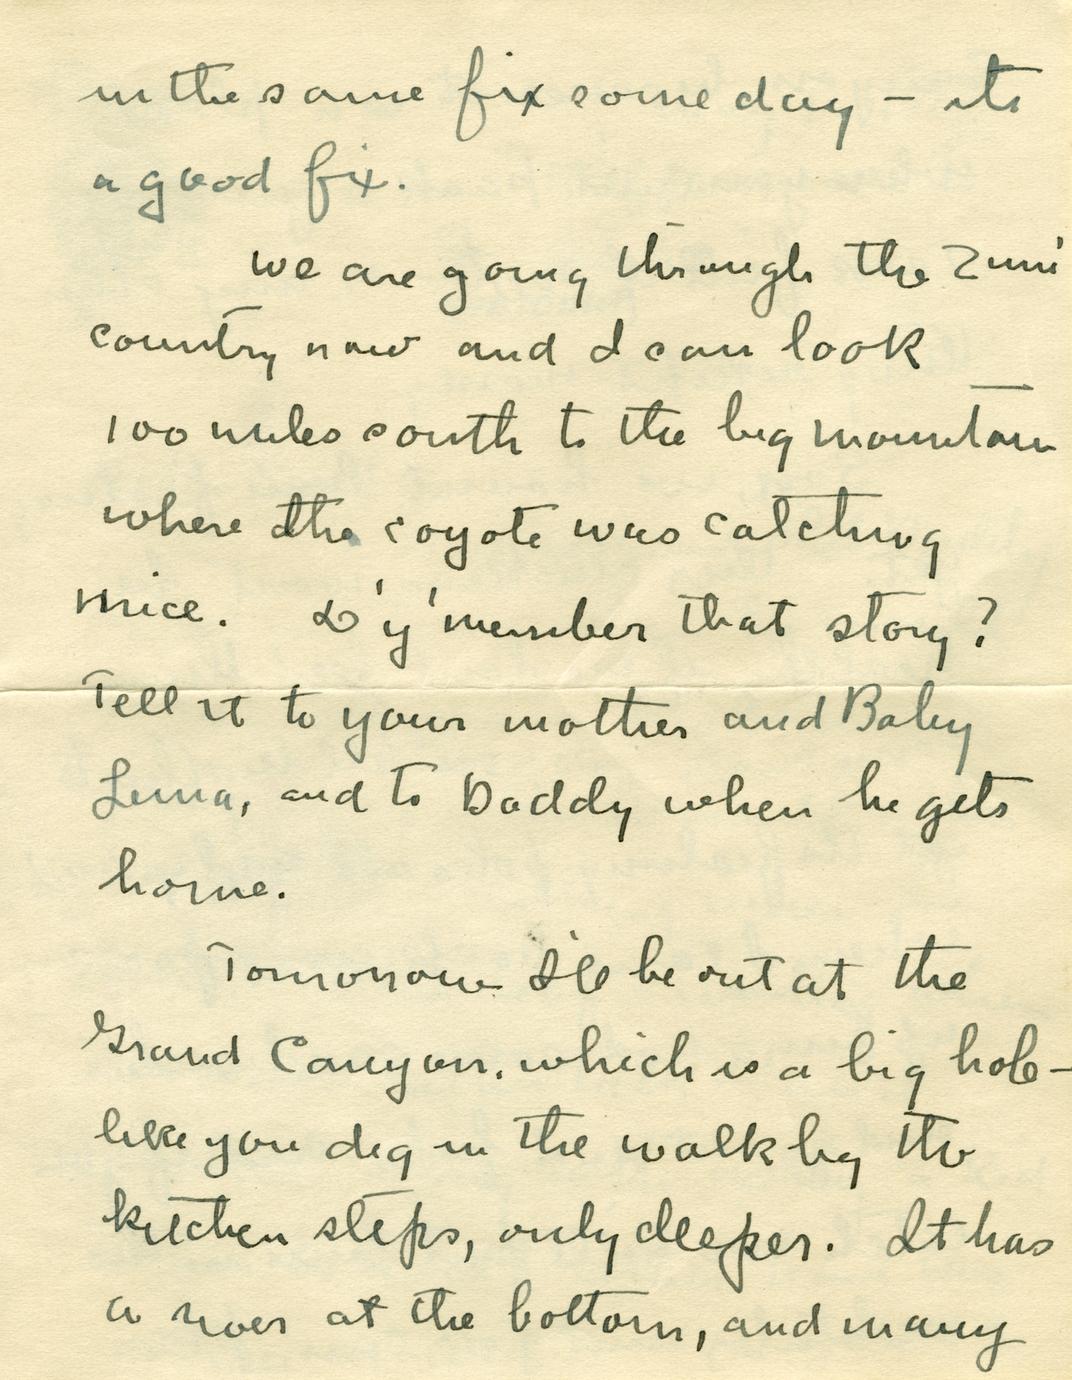 in the same fix some day - its
a good fix.
we are going through the Zuni
country now and I can look
100 miles south to the big mountain
where the coyote was catching
mice. D'y'member that story?
Tell it to your mother and Baby
Luna, and to Daddy when he gets
home.
Tomorrow I'll be out at the
Grand Canyon, which is a big hole -
like you dig in the walk by the
kitchen steps, only deeper. It has
a river at the bottom, and many